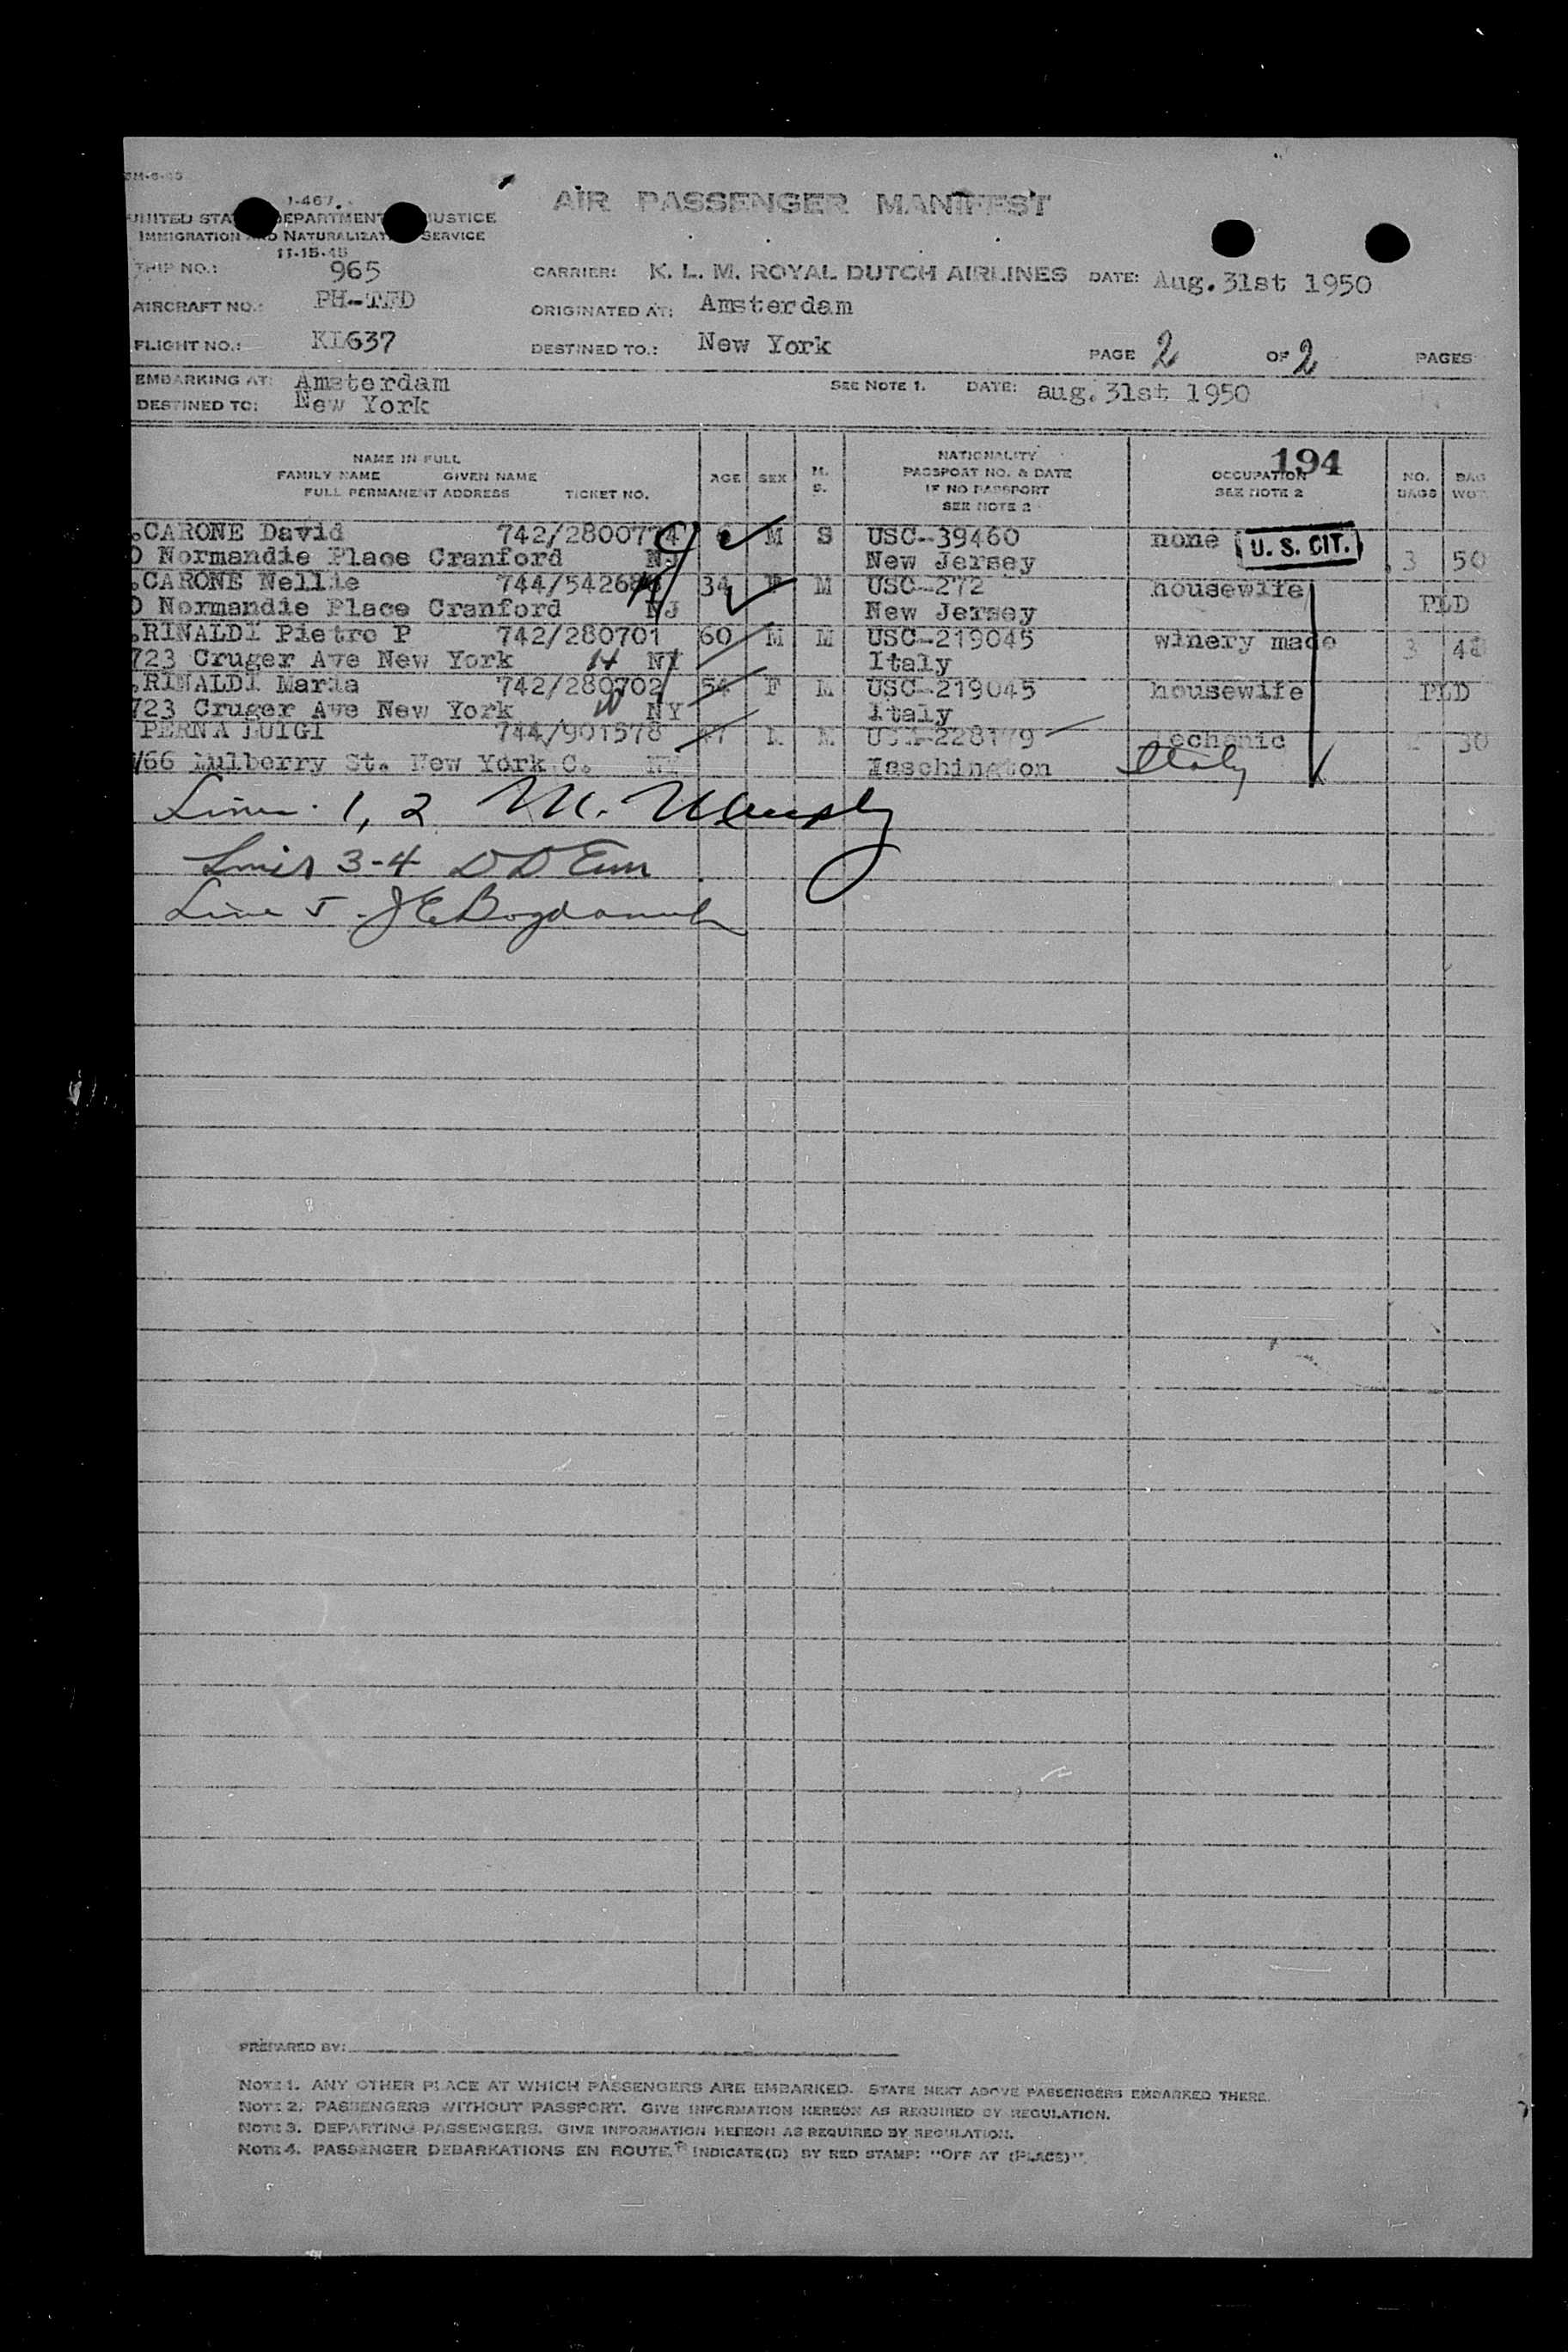 I-467
UNITED STA DEPARTMENT JUSTICE
IMMIGRATION AND NATURALIZAT SERVICE
11-15-45
AIR PASSENGER MANIFEST
TRIP NO.: 965 CARRIER: K. L. M. ROYAL DUTCH AIRLINES DATE: Aug. 31st 1950
AIRCRAFT NO.: PH-TFD ORIGINATED AT: Amsterdam
FLIGHT NO.: KL637 DESTINED TO.: New York PAGE 2 OF 2 PAGES
EMBARKING AT: Amsterdam SEE NOTE 1. DATE: aug. 31st 1950
DESTINED TO: New York
194
NAME IN FULL
FAMILY NAME GIVEN NAME
FULL PERMANENT ADDRESS TICKET NO.
AGE SEX M. S.
NATIONALITY
PASSPORT NO. & DATE
IF NO PASSPORT
SEE NOTE 2
OCCUPATION
SEE NOTE 2
NO. BAGS
BAG WGT.
CARONE David 742/2800774 M S USC-39460 none U. S. CIT. 3 50
Normandie Place Cranford NJ New Jersey
CARONE Nellie 34 F M USC-272 housewife PLD
Normandie Place Cranford NJ New Jersey
RINALDI Pietro P 742/280701 60 M M USC-219045 winery made 3
723 Cruger Ave New York NY Italy
RINALDI Maria 742/280702 54 F M USC-219045 housewife PLD
723 Cruger Ave New York NY Italy
PERNA LUIGI 744/901578 30
166 Mulberry St. New York C. NY Waschington Italy
Lines 1, 2 M. Murphy
Lines 3-4 D D
Line 5 - J E
PREPARED BY:
NOTE 1. ANY OTHER PLACE AT WHICH PASSENGERS ARE EMBARKED. STATE NEXT ABOVE PASSENGERS EMBARKED THERE.
NOTE 2. PASSENGERS WITHOUT PASSPORT. GIVE INFORMATION HEREON AS REQUIRED BY REGULATION.
NOTE 3. DEPARTING PASSENGERS. GIVE INFORMATION HEREON AS REQUIRED BY REGULATION.
NOTE 4. PASSENGER DEBARKATIONS EN ROUTE. INDICATE(D) BY RED STAMP: "OFF AT (PLACE)".